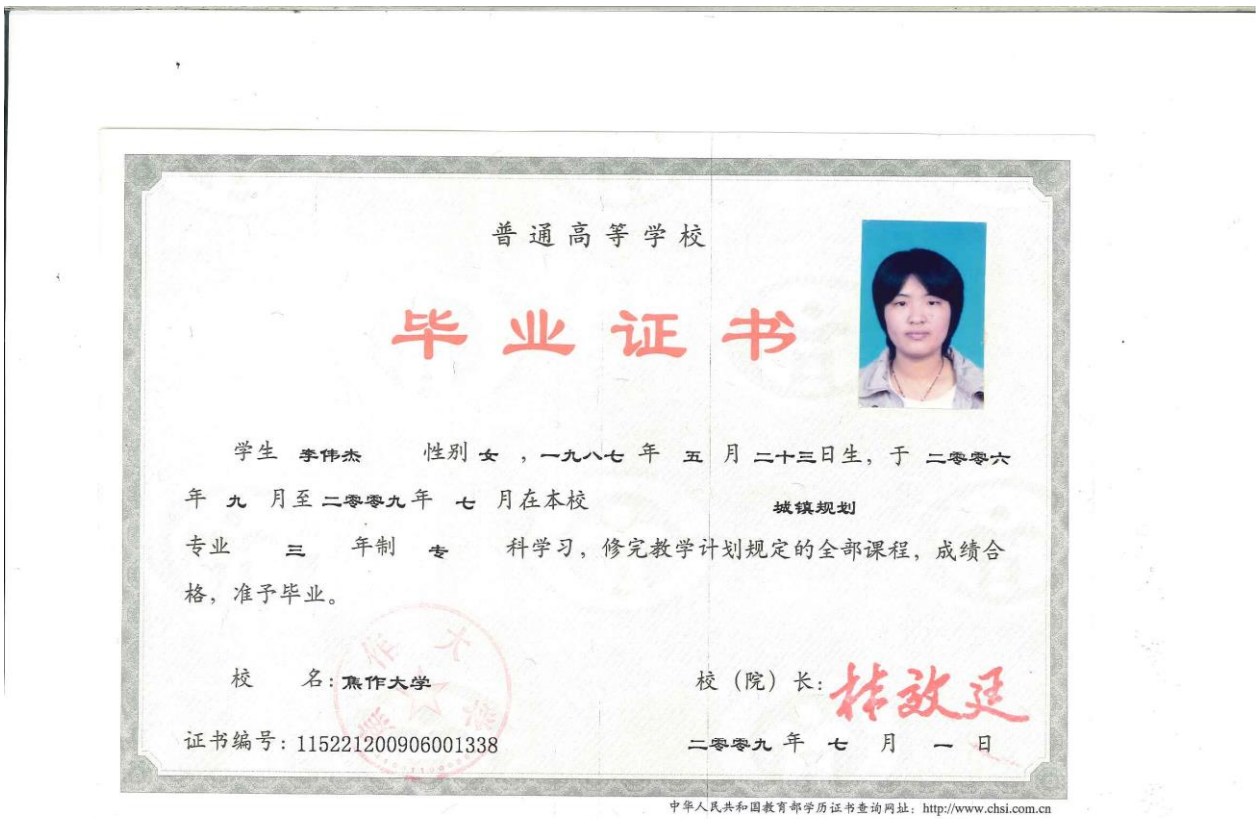 普通高等学校
毕业证书
学生 李伟杰 性别 女 ，一九八七 年 五 月 二十三日生，于 二零零六
年 九 月至 二零零九 年 七 月在本校 城镇规划
专业 三 年制 专 科学习，修完教学计划规定的全部课程，成绩合
格，准予毕业。
校 名：焦作大学 校（院）长：
证书编号：115221200906001338 二零零九 年 七 月 一 日
中华人民共和国教育部学历证书查询网址：http://www.chsi.com.cn